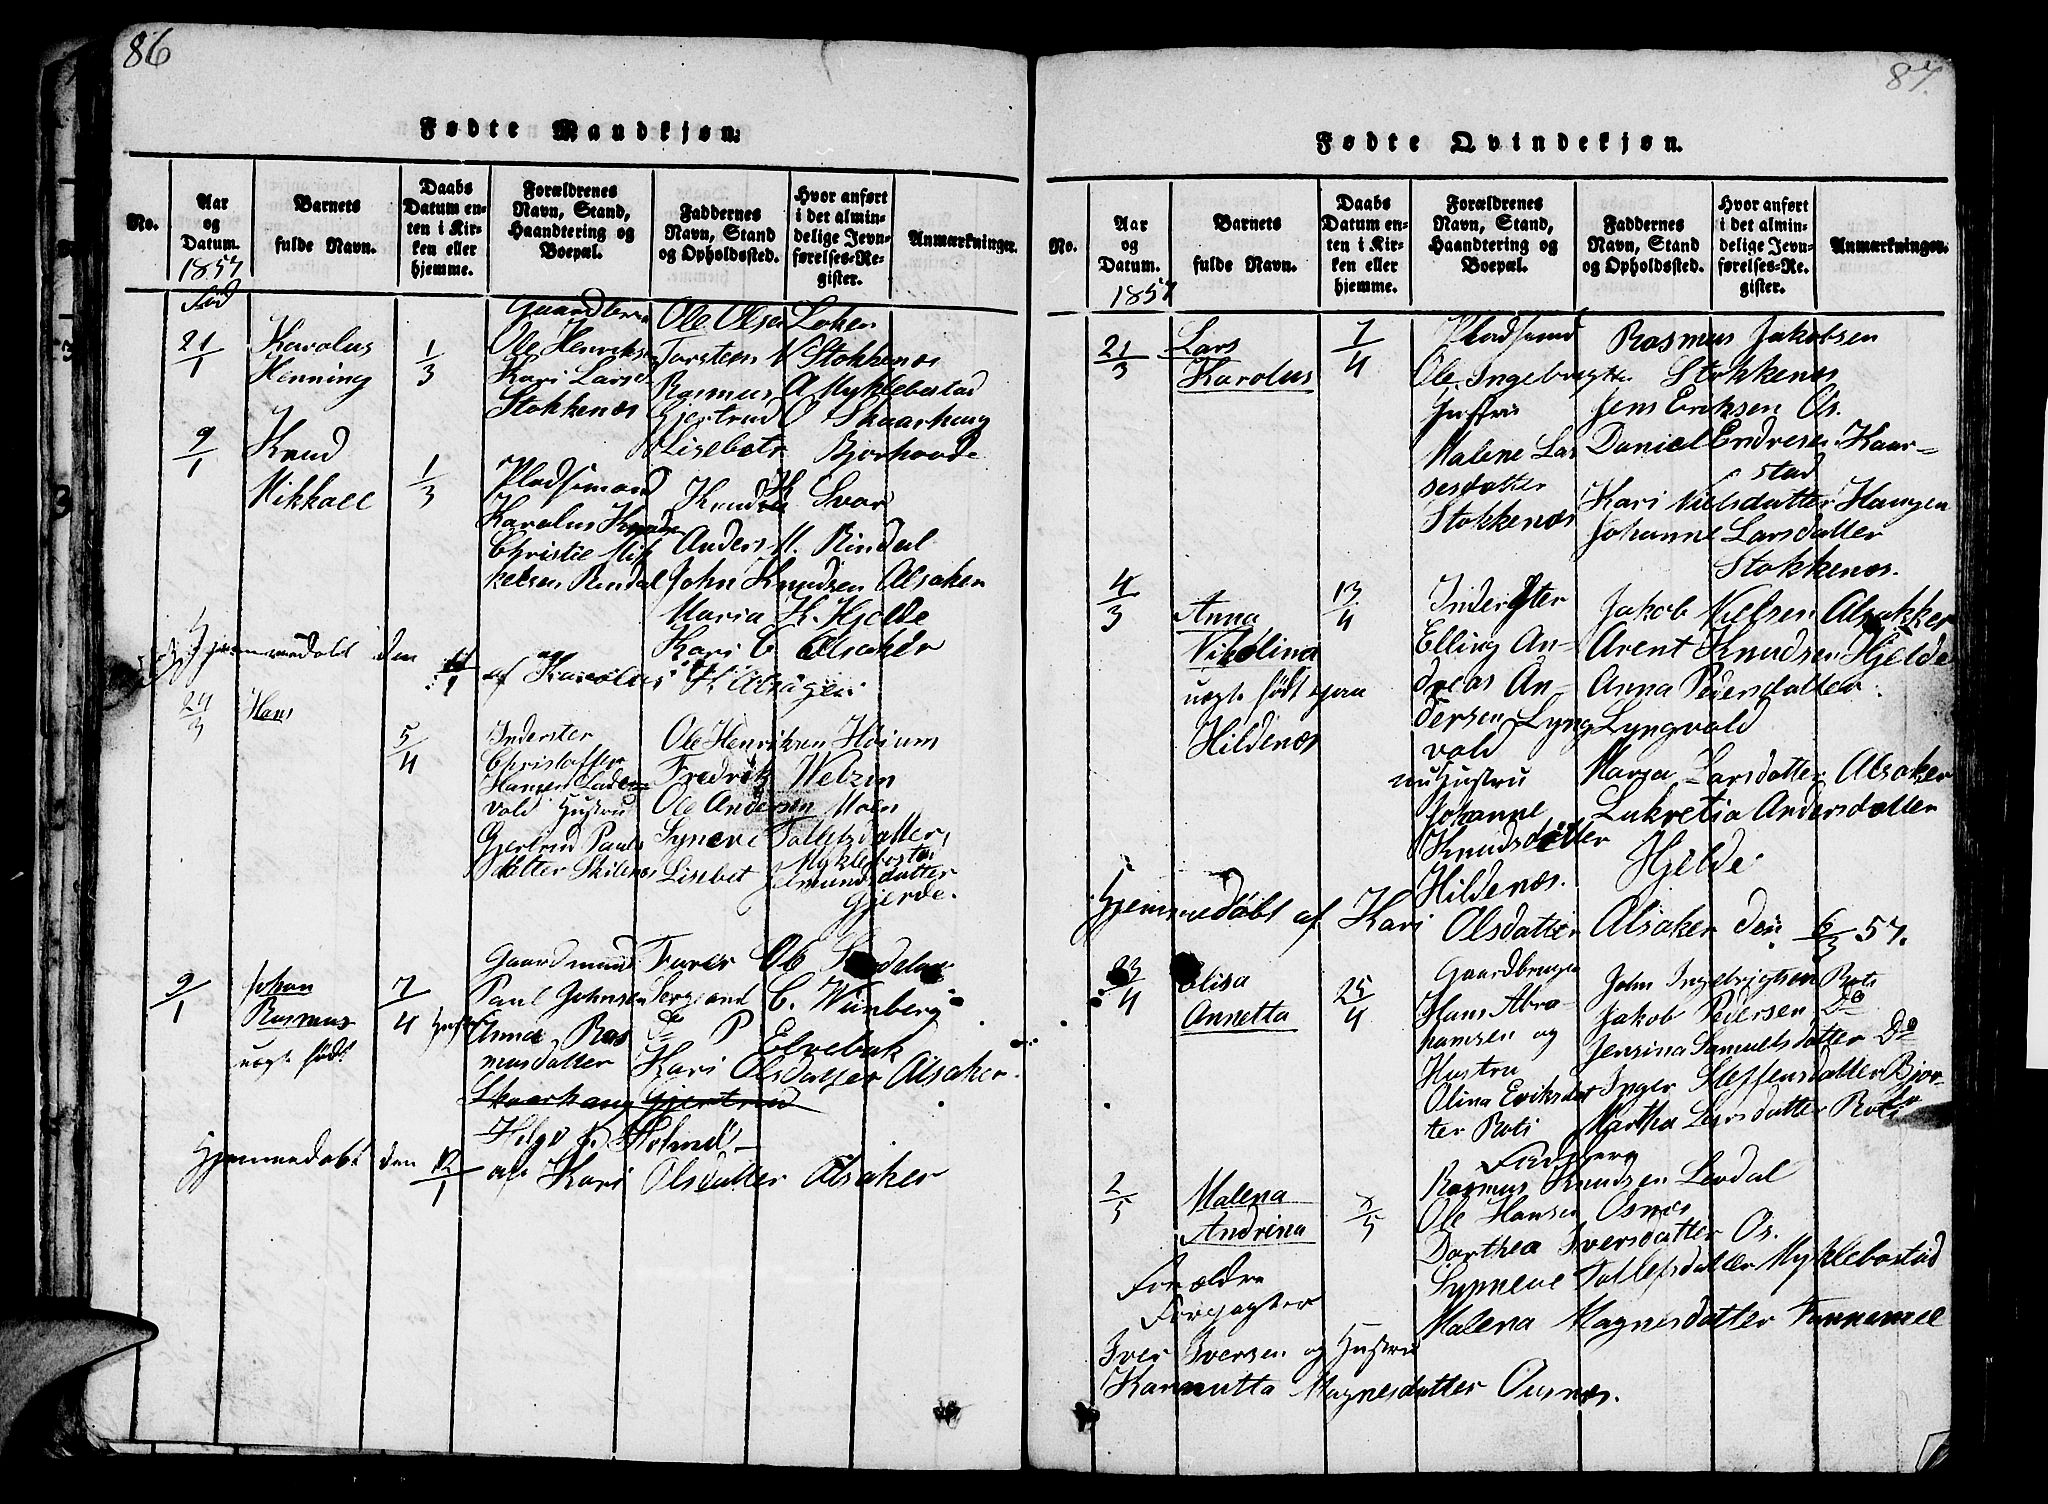 86
Fødte Mandkjøn.
No.
Aar og Datum.
1857
Født
Barnets fulde Navn.
Daabs Datum enten i Kirken eller hjemme.
Forældrenes Navn, Stand, Haandtering og Boepæl.
Faddernes Navn, Stand og Opholdssted.
Hvor anført i det almindelige Jevnførelses-Register.
Anmærkninger.
21/1
Karolus
Henning
1/3
Ole Henriks
Kari Lars
Stokkenæs
Ole Olsen Loken
Torsten N Stokkenæs
Rasmus A Myklebostad
Gjertrud O Skaarhaug
Lisebet
9/1
Knud
Mikkael
1/3
Pladsmand
Karolus
Christie Mik
kelsen Rindal
Knud K Svor
Anders M. Rindal
John Knudsen Alsaker
Maria K. Hjelde
Kari C Alsaker
Hjemmedøbt den 11/1 af Karolus K
24/3
Hans
5/4
Inderster
Christoffer
Hansen
vold Hustru
Gjertrud Pauls
datter
Ole Henriksen Hoium
Fredrik Welzin
Ole Andersen Moen
Synevе Tollefsdatter
Myklebostad
Lisebet Amundsdatter
Gjerde.
9/1
Johan
Rasmus
uægte født
7/4
Gaardmand
Paul Johnsen
Anna Ras
musdatter
Skaarhaug Gjertrud
Furer Ob
Sergeand C. Wünberg
P Elvebak
Kari Olsdatter Alsaker
Helge
Hjemmedøbt den 12/1 af Kari Olsdatter Alsaker
87.
Fødte Qvindekjøn.
No.
Aar og Datum.
1857
Barnets fulde Navn.
Daabs Datum enten i Kirken eller hjemme.
Forældrenes Navn, Stand, Haandtering og Boepæl.
Faddernes Navn, Stand og Opholdssted.
Hvor anført i det almindelige Jevnførelses-Register.
Anmærkninger.
21/3
Lars
Karolus
7/4
Pladsmand
Ole Ingebrigts
Hustru
Malene Lar
sesdatter
Stokkenæs
Rasmus Jakobsen
Stokkenæs
Jens Eriksen Os.
Daniel Endresen Kaar-
stad
Kari Nielsdatter Haugen
Johanne Larsdatter
Stokkenæs.
4/3
Anna
Nikolina
uægte født
Hildenæs
13/4
Inderster
Elling An-
dreas An-
dersen Lyng
vold
Hustru
Johanne
Knudsdatter
Hildenæs.
Jakob Nielsen Alsakker
Arent Knudsen Hjelde
Anna Pedersdatter
Lyngvold
Marja Larsdatter Alsaker
Lukretia Andersdatter
Hjelde
Hjemmedøbt af Kari Olsdatter Alsaker den 6/3 57.
23/4
Elisa
Annetta
25/4
Gaardbruger
Hans Abra-
hamsen og
Hustru
Olina Eriksdat
ter Roti
John Ingebrigtsen Roti
Jakob Pedersen Do
Jensina Samuelsdatter Do
Inger Steffensdatter Bjor-
Martha Larsdatter Roti
2/5
Malena
Andrina
Rasmus Knudsen Lerdal
Ole Hansen Osnæs
Dorthea Iversdatter Os.
Synneve Tollefsdatter Myklebostad
Malena Magnesdatter
Forældre
Forpagter
Iver Iversen og Hustru
Kannutta Magnesdatter Ousnæs.